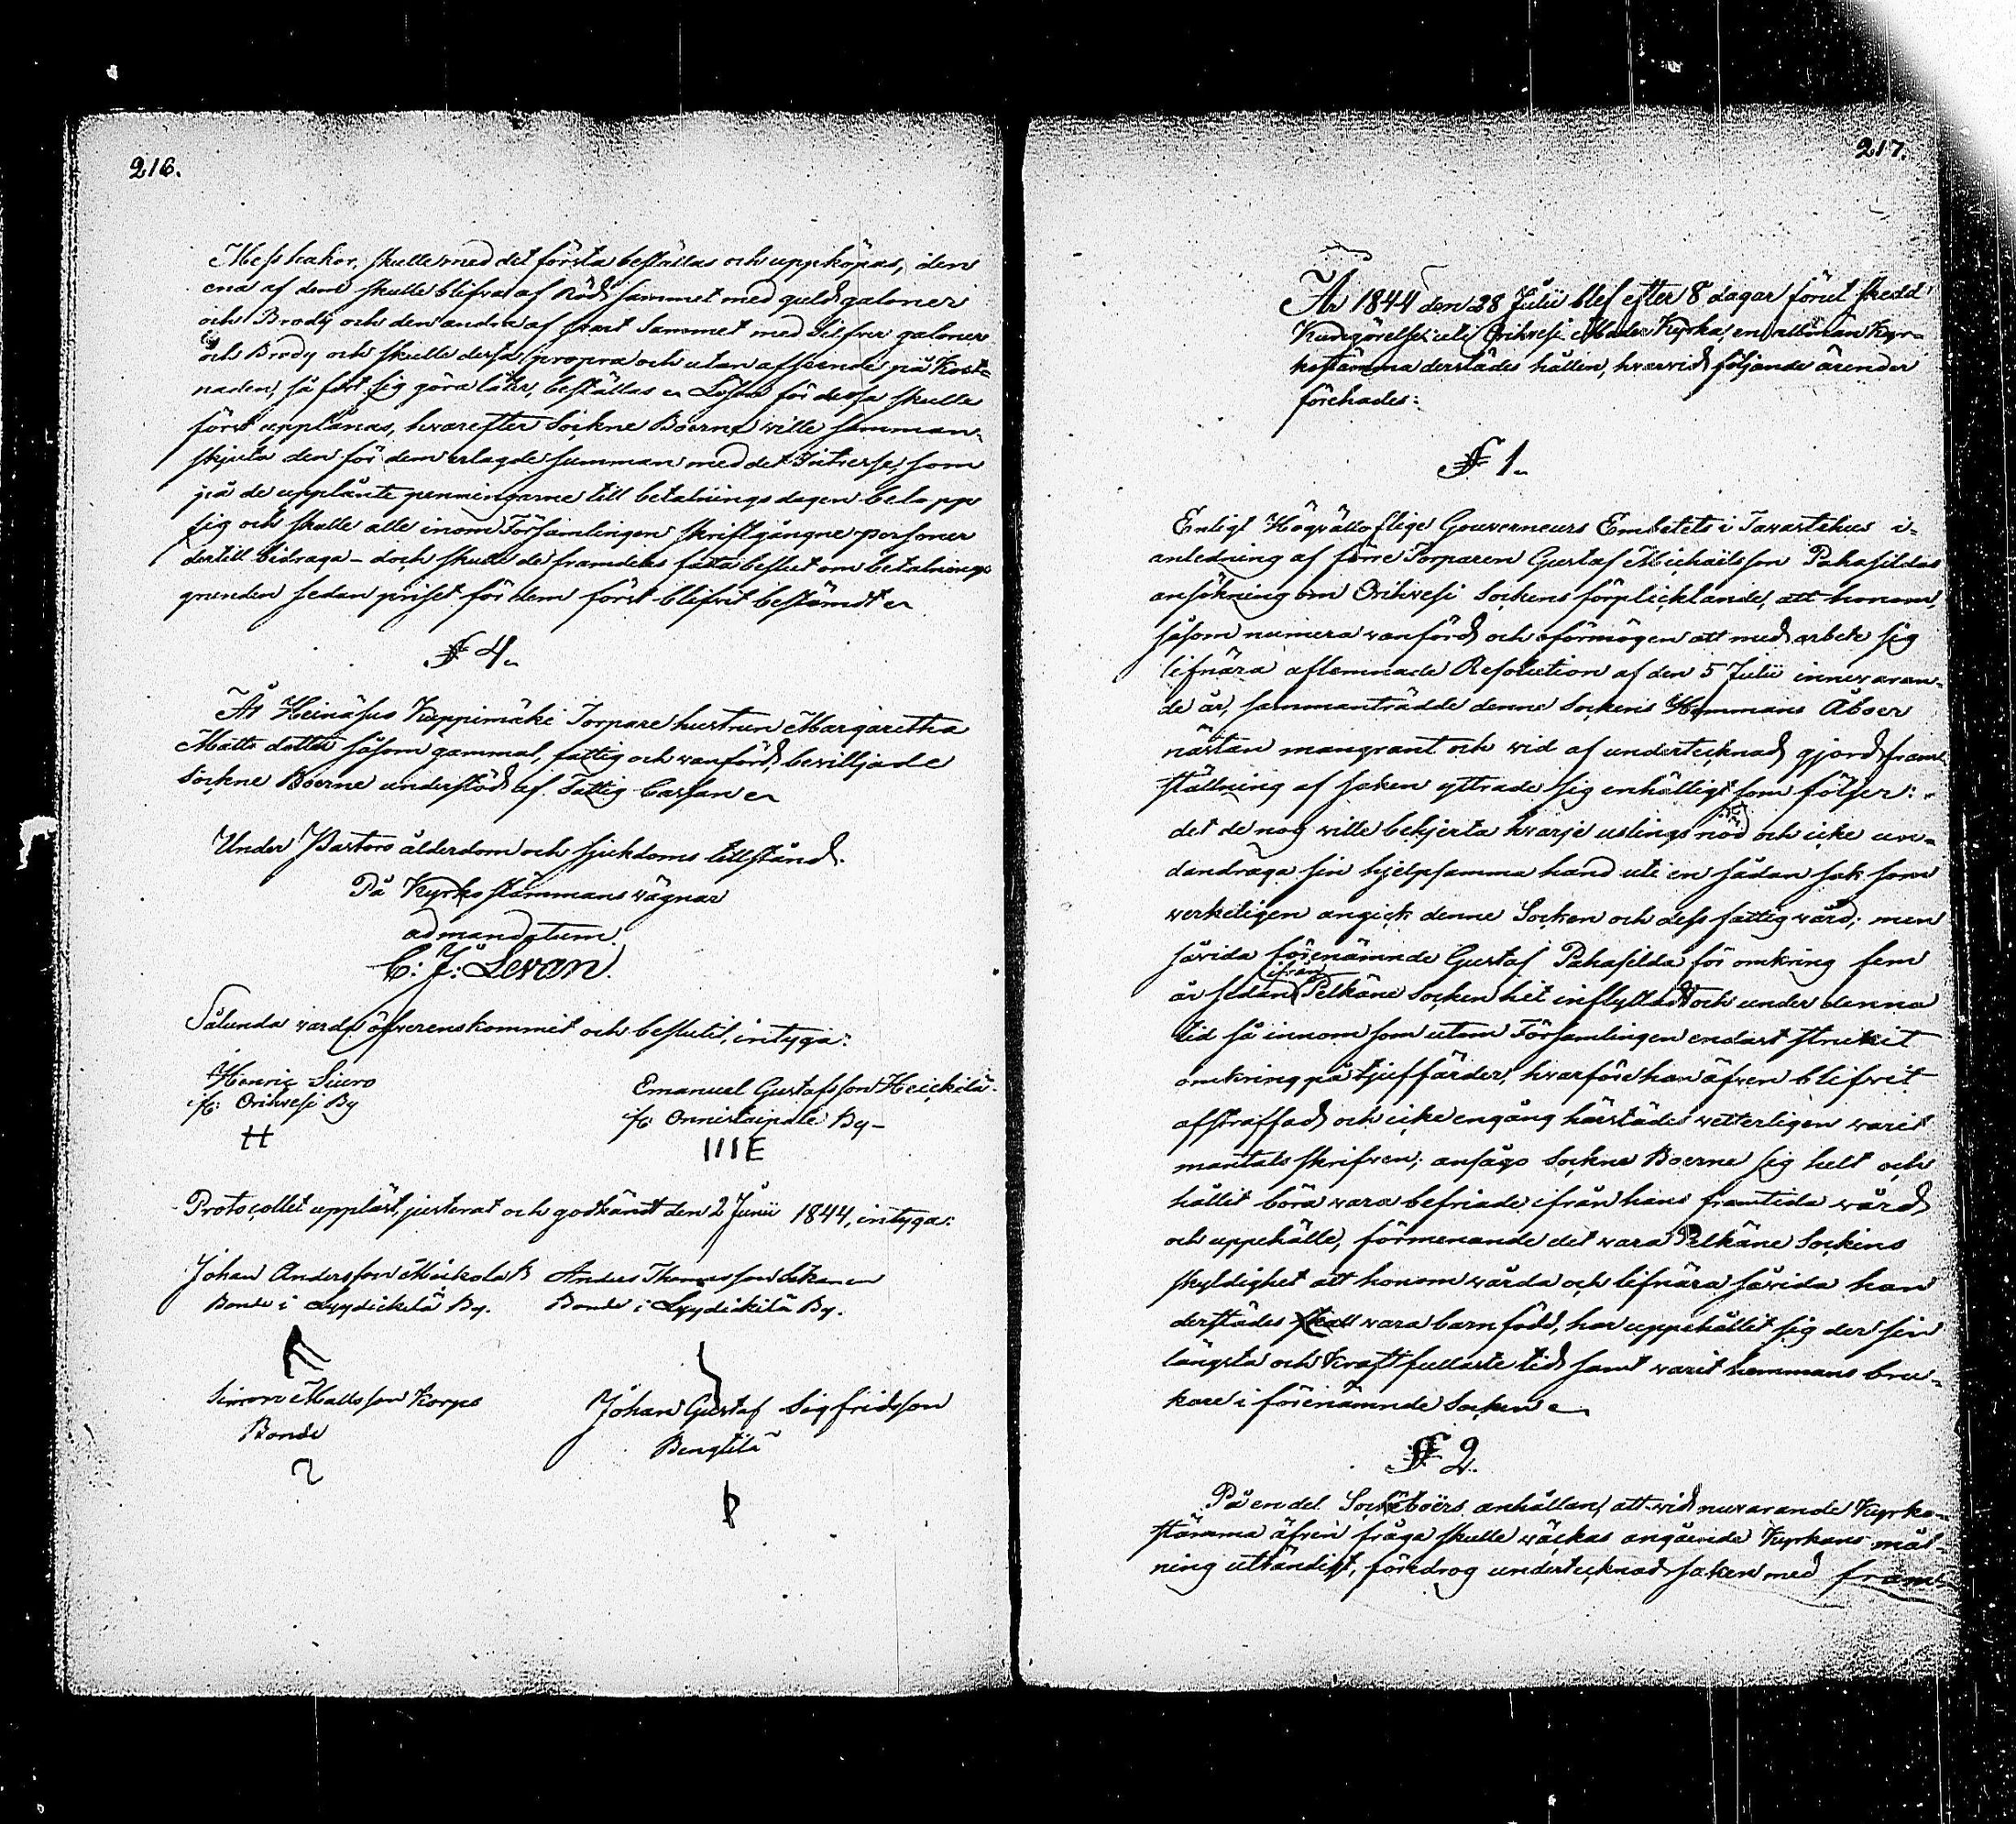 216.
Messhakor, skulle med det första beställas och uppköpas, den
ena af dem skulle blifva af Röd sammet med guld galoner
och Brody och den andra af svart Sammet med Silfver galoner
och Brody och skulle dessa propra och utan afseende på Kost-
naden, så fort sig göra låter, beställas. Lösen för dessa skulle
först upplånas, hvarefter Sockne Boerne ville samman-
skjuta den för dem erlagde summan med det Intresse, som
på de upplånte penningarne till betalnings dagen belöpp
sig och skulle alle inom Församlingen skriftgångne personer
dertill bidraga – doch skulle de framdeles fatta beslut om betalnings
grunden sedan priset för dem först blifvit bestämdt.
§ 4.
Åt Heinäsuo Kuppimäki Torpare hustrun Margaretha
Matts dotter såsom gammal, fattig och vanförd, bevilljade
Sockne Boerne understöd af Fattig Cassan.
Under Pastors ålderdom och sjukdoms tillstånd.
På Kyrko stämmans vägnar
ad mandatum.
C: J: Levan.
Sålunda varda öfverenskommit och beslutit, intyga:
Henric Siuro
fr: Orihvesi By
H
Emanuel Gustafsson Heickilä
fr: Onnistaipale By –
IIIE
Protocollet uppläst, justerat och godkändt den 2 Junii 1844, intyga:
Johan Andersson Mickola
Bonde i Lyydickilä By.
Anders Thomasson
Bonde i Lyydickilä By.
Simon Mattsson Korpes
Bonde
Johan Gustaf Sigfridsson
Bengtilä
217.
År 1844 den 28 Julii blef efter 8 dagar förut skedd
Kungörelse uti Orihvesi Moder Kyrka, en allmän Kyr-
kostämma derstädes hållen, hvarvid följande ärender
förehades:
§ 1.
Enligt Högvällofliga Gouverneurs Embetets i Tavastehus i
anledning af förre Torparen Gustaf Michaelsson Pahasildas
ansökning om Orihvesi Sockens förplicktande, att honom,
såsom numera vanförd och oförmögen att med arbete sig
lifnära aflemnade Resolution af den 5 Julii innevaran-
de år, sammanträdde denne Sockens Hemmans Åboer
nästan mangrant och vid af undertecknad gjord fram-
ställning af saken yttrade sig enhälligt som följer:
det de nog ville behjerta hvarje uslings nöd och icke un-
dandraga sin hjelpsamma hand uti en sådan sak som
verkeligen angick denne Socken och dess fattig vård; men
såvida förenämnde Gustaf Pahasilda för omkring fem
år sedan ifrån Pelkäne Socken hit inflyttat och under denna
tid så innom som utom Församlingen endast strukit
omkring på tjuffärder, hvarföre han äfven blifvit
afstraffad och icke engång härstädes vetterligen varit
mantals skrifven; ansågo Sockne Boerne sig helt och
hållit böra vara befriade ifrån hans framtida vård
och uppehälle, förmenande det vara Pelkäne Sockens
skyldighet att honom vårda och lifnära såvida han
derstädes skall vara barnfödd, har uppehållit sig der sin
längsta och kraftfullaste tid samt varit hemmans bru-
kare i förenämnde Socken.
§ 2.
På en del Socknebоers anhållan, att vid nuvarande Kyrko-
stämma äfven fråga skulle väckas angående Kyrkans mål-
ning utvändigt, föredrog undertecknad saken med fram-